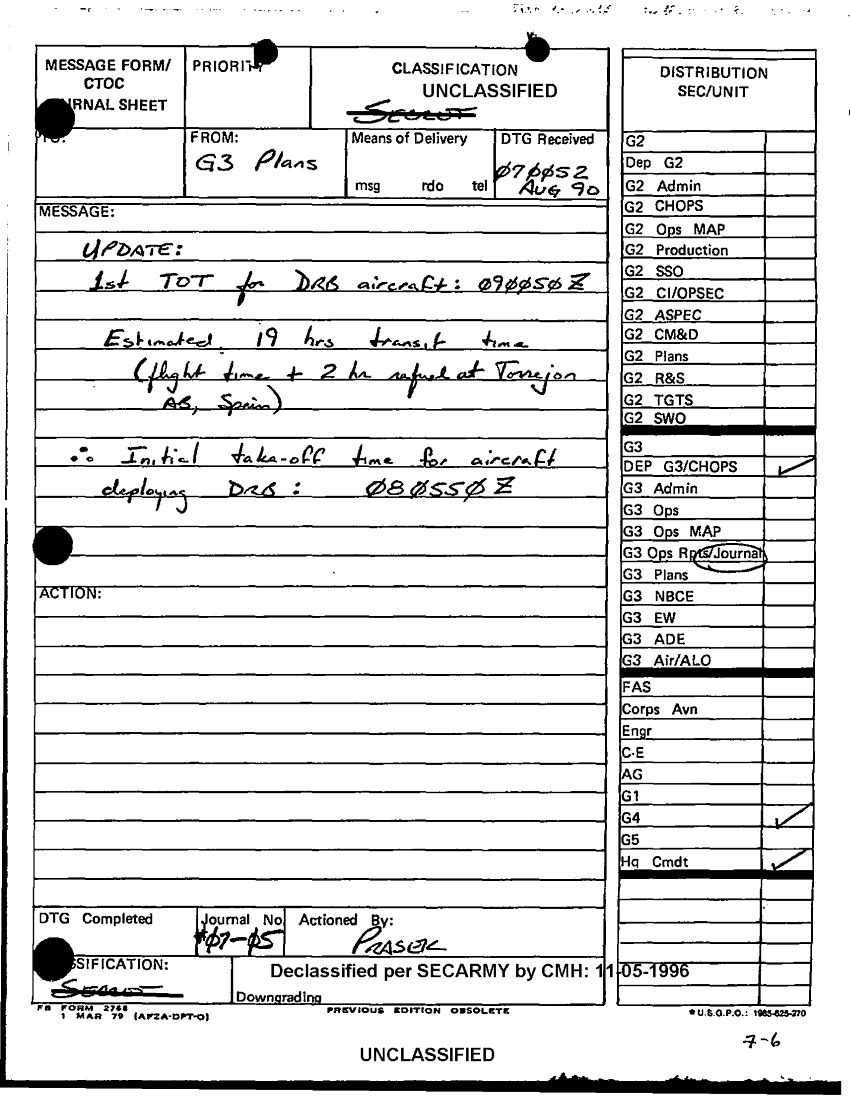 MESSAGE FORM/
CTOC
RNAL SHEET
PRIORITY
CLASSIFICATION
UNCLASSIFIED
SECRET
TO:
FROM:
G3 Plans
Means of Delivery
msg rdo tel
DTG Received
070052
AUG 90
MESSAGE:
UPDATE:
1st TOT for DRB aircraft: 090050Z
Estimated 19 hrs transit time
(flight time + 2 hr refuel at Torrejon
AB, Spain)
∴ Initial take-off time for aircraft
deploying DRB: 080550Z
ACTION:
DTG Completed
Journal No
#07-05
Actioned By:
PRASEK
SSIFICATION:
SECRET
Declassified per SECARMY by CMH: 11-05-1996
Downgrading
FB FORM 2768
1 MAR 79 (AFZA-DPT-O)
PREVIOUS EDITION OBSOLETE
DISTRIBUTION
SEC/UNIT
G2
Dep G2
G2 Admin
G2 CHOPS
G2 Ops MAP
G2 Production
G2 SSO
G2 CI/OPSEC
G2 ASPEC
G2 CM&D
G2 Plans
G2 R&S
G2 TGTS
G2 SWO
G3
DEP G3/CHOPS
G3 Admin
G3 Ops
G3 Ops MAP
G3 Ops Rpts/Journal
G3 Plans
G3 NBCE
G3 EW
G3 ADE
G3 Air/ALO
FAS
Corps Avn
Engr
C-E
AG
G1
G4
G5
Hq Cmdt
*U.S.G.P.O.: 1985-625-270
7-6
UNCLASSIFIED